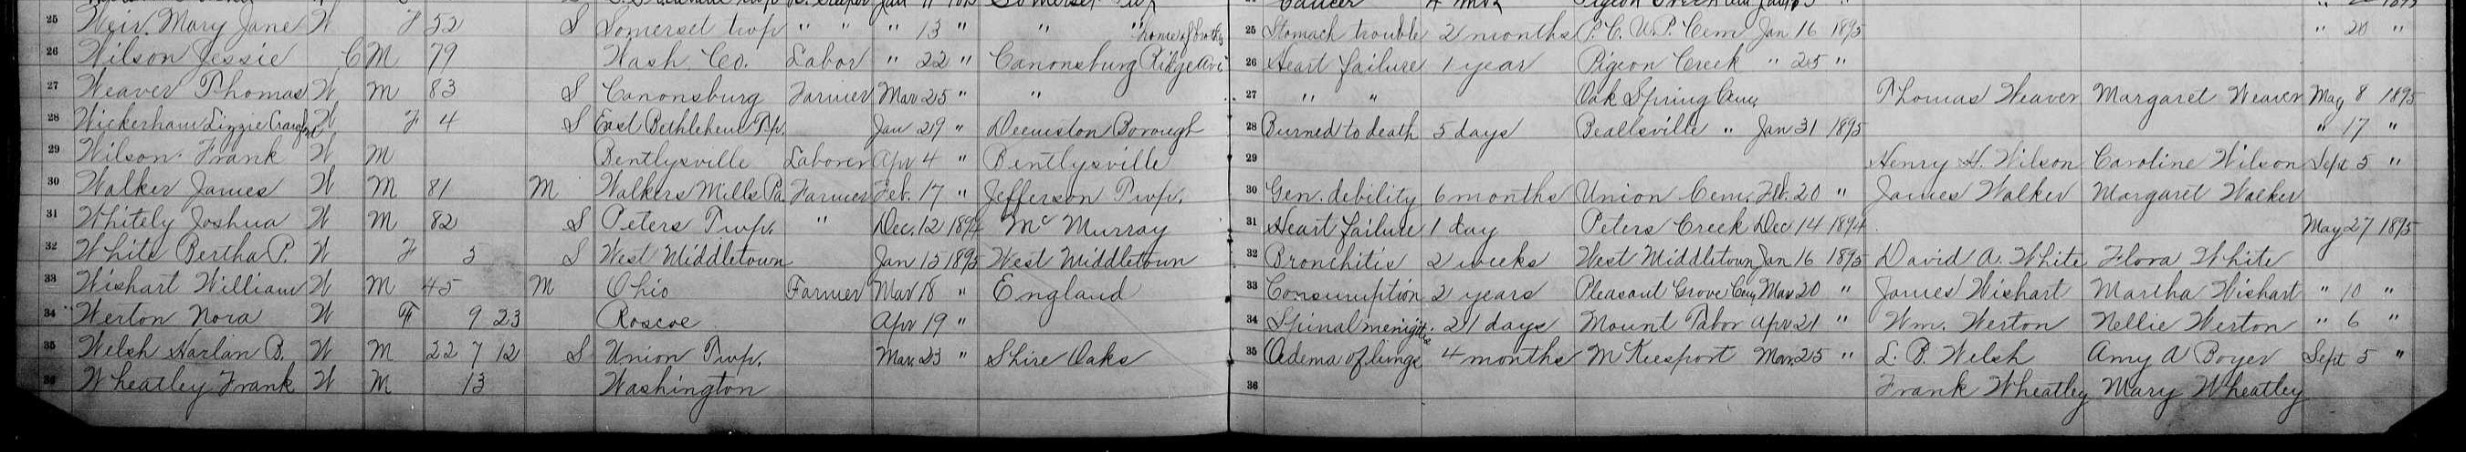 25 Weir Mary Jane W F 52 S Somerset twp " " " 13 " " 25 Stomach trouble 2 months P. C. U. P. Cem Jan 16 1895 " 20 "
26 Wilson Jessie C M 79 Wash. Co. Labor " 22 " Canonsburg Ridge Ave 26 Heart failure 1 year Pigeon Creek " 25 "
27 Weaver Thomas W M 83 S Canonsburg Farmer Mar 25 " " 27 " " Oak Spring Cem. Thomas Weaver Margaret Weaver May 8 1895
28 Wickerham Lizzie Crawford W F 4 S East Bethlehem Tp. Jan 29 " Deemston Borough 28 Burned to death 5 days Beallsville " Jan 31 1895 " 17 "
29 Wilson Frank W M Bentlysville Laborer Apr 4 " Bentlysville 29 Henry H. Wilson Caroline Wilson Sept 5 "
30 Walker James W M 81 M Walkers Mills Pa. Farmer Feb. 17 " Jefferson Twp. 30 Gen. debility 6 months Union Cem. Feb. 20 " James Walker Margaret Walker
31 Whitely Joshua W M 82 S Peters Twp. " Dec. 12 1894 Mc Murray 31 Heart failure 1 day Peters Creek Dec 14 1894 May 27 1895
32 White Bertha P. W F 3 S West Middletown Jan 15 1895 West Middletown 32 Bronchitis 2 weeks West Middletown Jan 16 1895 David A. White Flora White
33 Wishart William W M 45 M Ohio Farmer Mar 18 " England 33 Consumption 2 years Pleasant Grove Cem. Mar 20 " James Wishart Martha Wishart " 10 "
34 Werton Nora W F 9 23 Roscoe Apr 19 " 34 Spinal menigitis 21 days Mount Tabor Apr 21 " Wm. Werton Nellie Werton " 6 "
35 Welsh Harlan B. W M 22 7 12 S Union Twp. Mar. 23 " Shire Oaks 35 Oedema of lungs 4 months McKeesport Mar. 25 " L. B. Welsh Amy A Boyer Sept 5 "
36 Wheatley Frank W M 13 Washington 36 Frank Wheatley Mary Wheatley